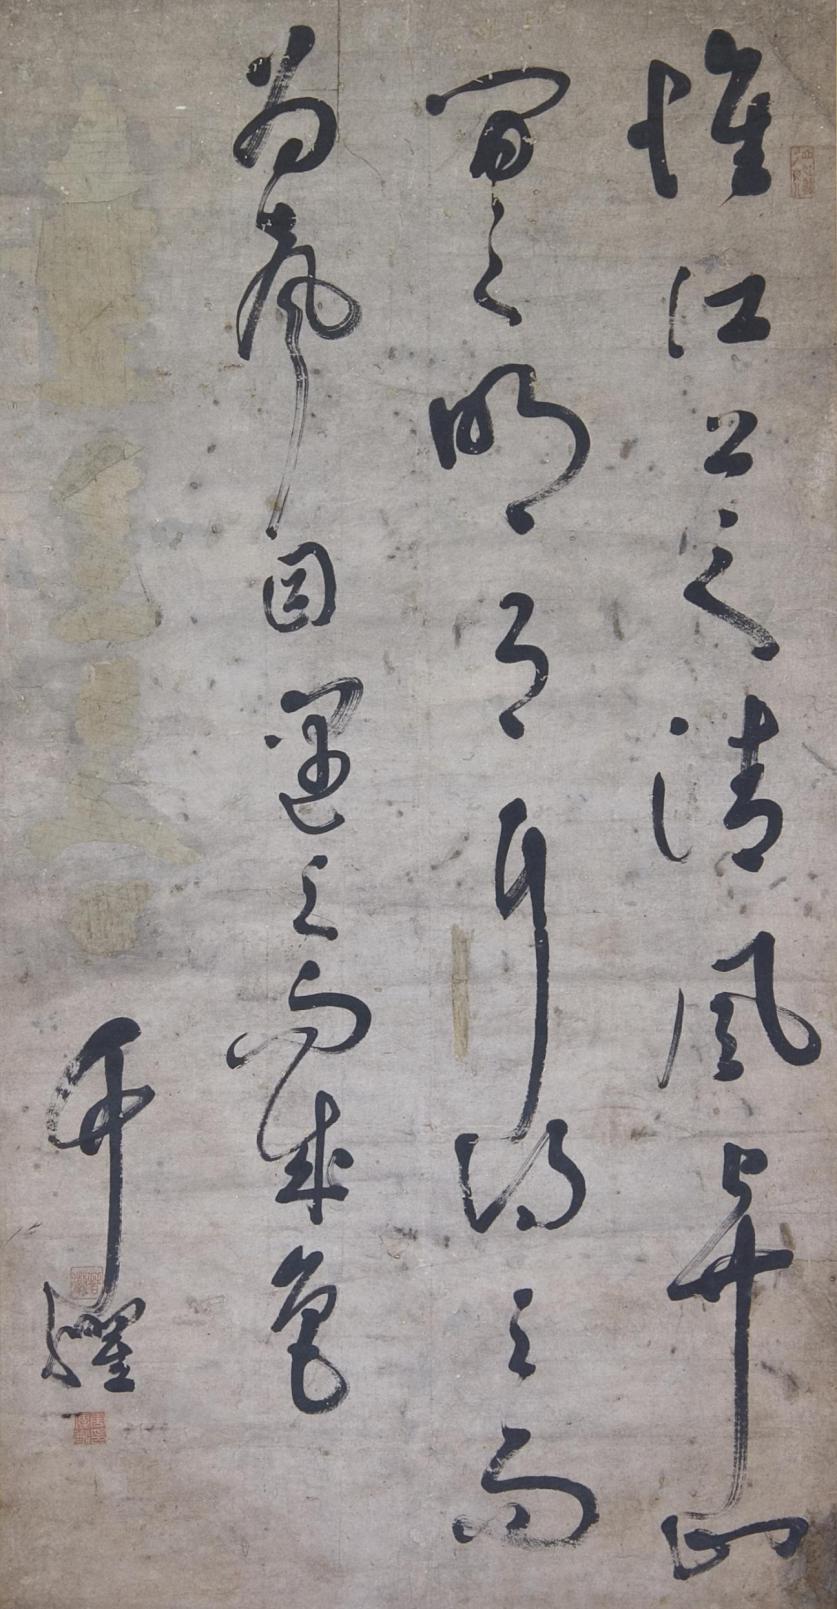 惟江上之清風與山
間之明月耳得之而
為聲目遇之而成色